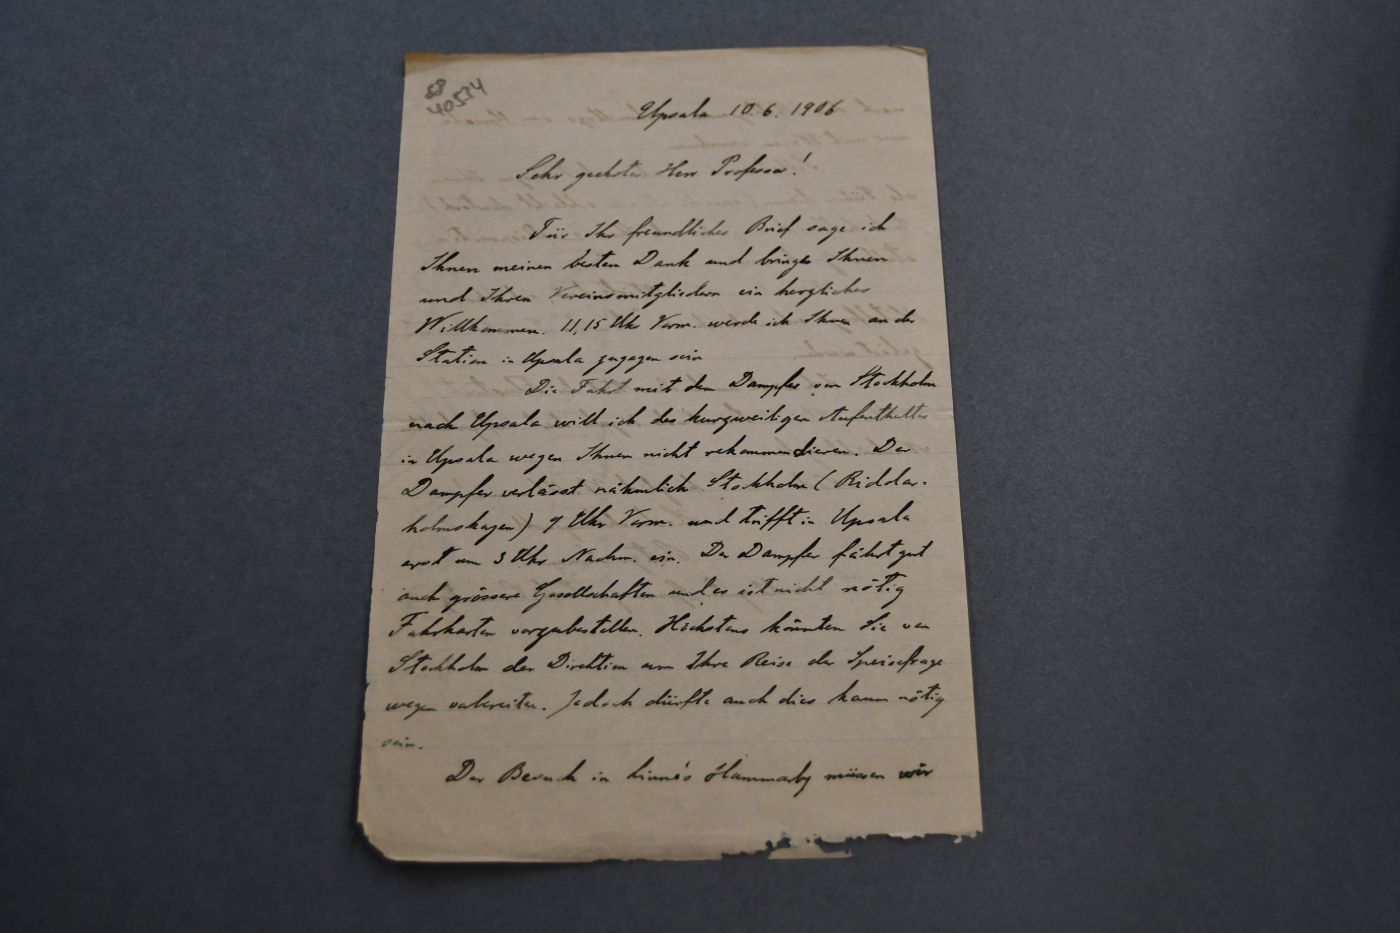 58
40534
Upsala 10. 6. 1906
Sehr geehrter Herr Professor!
Für Ihr freundliches Brief sage ich
Ihnen meinen besten Dank und bringe Ihnen
und Ihren Vereinsmitgliedern ein herzliches
Willkommen. 11,15 Uhr Vorm. werde ich Ihnen an der
Station in Upsala zugegen sein
Die Fahrt mit dem Dampfer von Stockholm
nach Upsala will ich des kurzweiligen Aufenthaltes
in Upsala wegen Ihnen nicht rekommendieren. Der
Dampfer verlässt nähmlich Stockholm (Riddar-
holmskagen) 9 Uhr Vorm. und trifft in Upsala
erst um 3 Uhr Nachm. ein. Der Dampfer fährt gut
auch grössere Gesellschaften und es ist nicht nötig
Fahrkarten vorzubestellen. Höchstens könnten Sie von
Stockholm der Direktion um Ihre Reise der Speisefrage
wegen vorbereiten. Jedoch dürfte auch dies kaum nötig
sein.
Der Besuch in Linné's Hammarby müssen wir